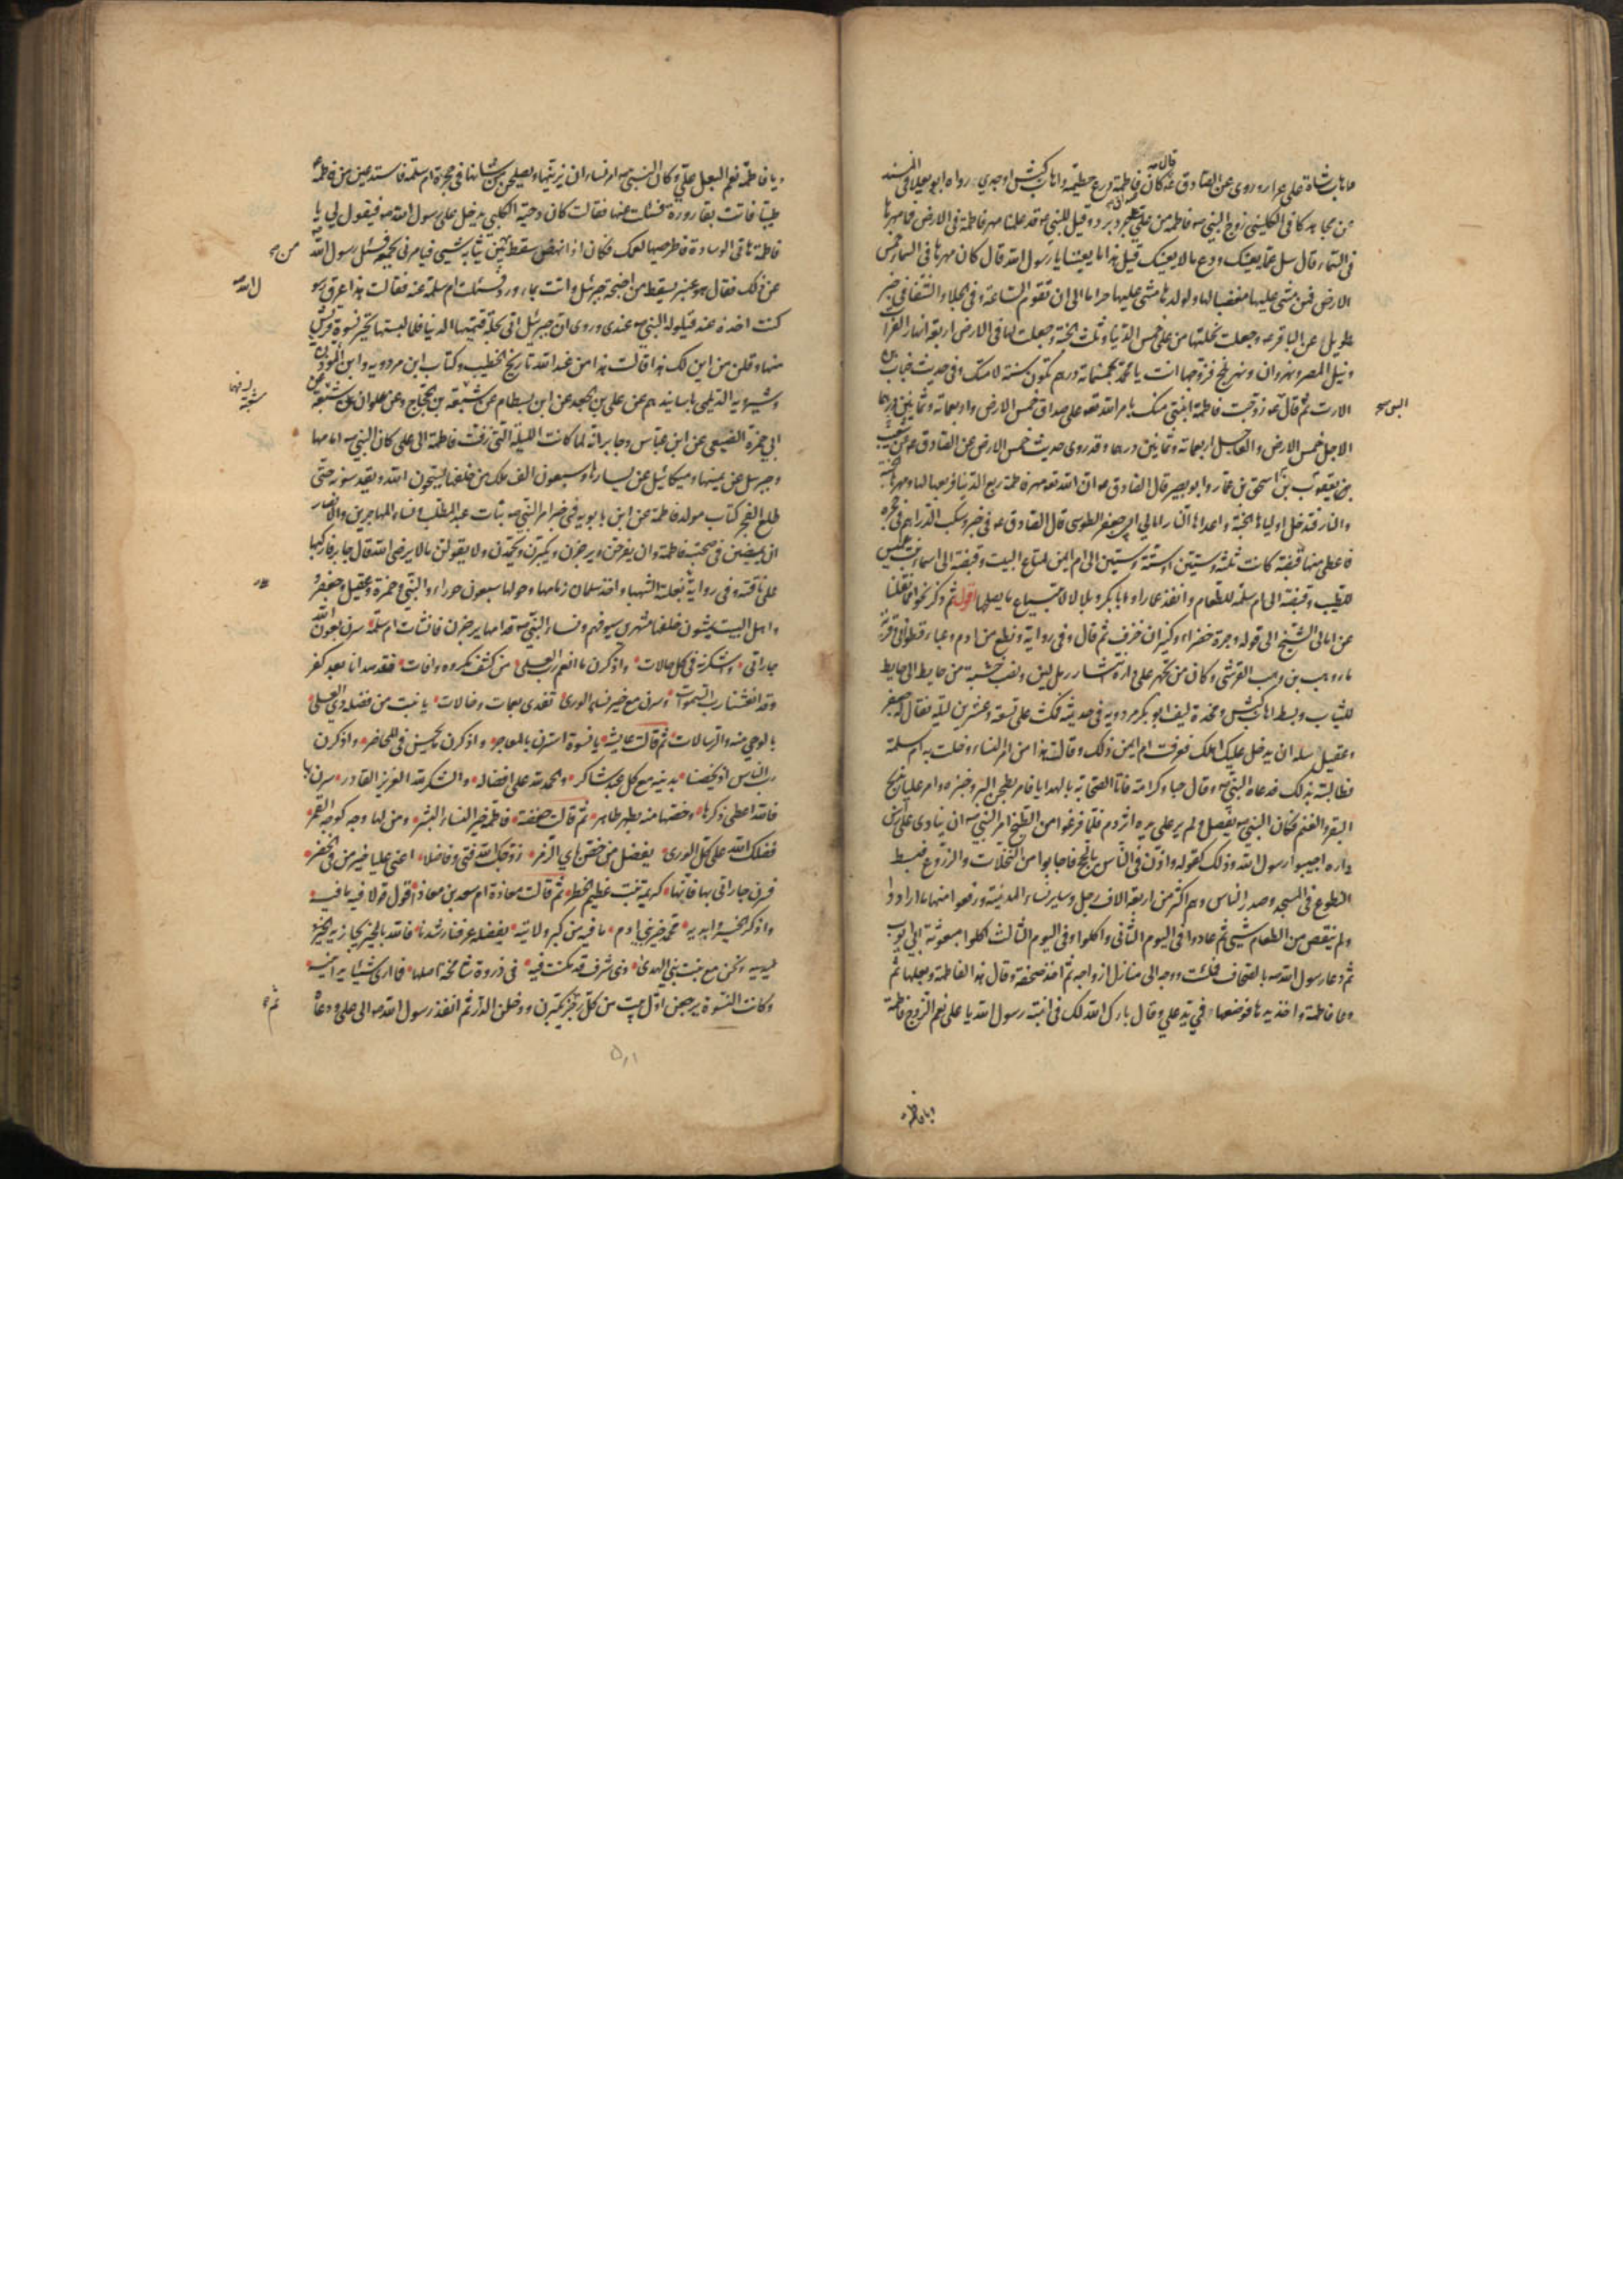 اهاب شاة على عرار وروى عن الصادق ع قال كان فاطمة درع حطمية واهاب كبش او جدي رواه ابو يعلى في المسند
عن مجاهد كافي الكليني زوج النبي ص فاطمة من علي على جرد برد وقيل للنبي ص قد علمنا مهر فاطمة في الارض فما مهرها
في السماء قال سل عما يعنيك ودع ما لا يعنيك قيل هذا مما يعنينا يا رسول الله قال كان مهرها في السماء خمس
الارض فمن مشى عليها مغضبا لها ولولدها مشى عليها حراما الى ان تقوم الساعة وفي الجلاء والشفاء في خبر
طويل عن الباقر ع وجعلت نحلتها من علي خمس الدنيا وثلث الجنة وجعلت لها في الارض اربعة انهار الفرات
ونيل المصر ونهروان ونهر بلخ فزوجها انت يا محمد بخمسمائة درهم تكون سنة لامتك وفي حديث خباب بن
الارت ثم قال ص زوجت فاطمة ابنتي منك بامر الله تعالى على صداق خمس الارض واربعمائة وثمانين درهما
الاجل خمس الارض والعاجل اربعمائة وثمانين درهما وقد روى حديث خمس الارض عن الصادق ع
بن يعقوب بن اسحق بن عمار وابو بصير قال الصادق ع ان الله تعالى مهر فاطمة ربع الدنيا فربعها لها ومهرها الجنة
والنار فتدخل اولياءها الجنة واعداءها النار امالي ابي جعفر الطوسي قال الصادق ع في خبر وسكب الدراهم في حجره
فاعطى منها قبضة كانت ثلثة وستين او ستة وستين الى ام ايمن لمتاع البيت وقبضة الى اسماء بنت عميس
للطيب وقبضة الى ام سلمة للطعام وانفذ عمارا وابا بكر وبلالا لابتياع ما يصلحها اقول ثم ذكر نحوا مما نقلنا
عن امالي الشيخ الى قوله وجرة خضراء وكيزان خزف ثم قال وفي رواية ونطع من ادم وعباء قطواني وقربة
ماء وهب بن وهب القرشي وكان من تجهيز علي داره انتشار رمل لين ونصب خشبة من حايط الى حايط
للثياب وبسط اهاب كبش ومخدة ليف ابو بكر مردويه في حديثه فمكث علي تسعة وعشرين ليلة فقال له جعفر
وعقيل سله ان يدخل عليك اهلك فعرفت ام ايمن ذلك وقالت هذا من امر النساء وخلت به ام سلمة
فطالبته بذلك فدعاه النبي ص وقال حبا وكرامة فاتا الصحابة بالهدايا فامر بطحن البر وخبزه وامر عليا بذبح
البقر والغنم فكان النبي ص يفصل ولم ير على يده اثر دم فلما فرغوا من الطبخ امر النبي ص ان ينادى على راس
داره اجيبوا رسول الله وذلك كقوله واذن في الناس بالحج فاجابوا من النخلات والزروع فبسط
النطوع في المسجد وصدر الناس وهم اكثر من اربعة الاف رجل وساير نساء المدينة ورفعوا منها ما ارادوا
ولم ينقص من الطعام شيى ثم عادوا في اليوم الثاني واكلوا وفي اليوم الثالث اكلوا مبعوثة ابي ايوب
ثم دعا رسول الله ص بالصحاف فملئت ووجه الى منازل ازواجه ثم اخذ صحفة وقال هذا لفاطمة وبعلها ثم
دعا فاطمة واخذ يدها فوضعها في يد علي وقال بارك الله لك في ابنة رسول الله يا علي نعم الزوج فاطمة
ويا فاطمة
ويا فاطمة نعم البعل علي وكان النبي ص امر نساءه ان يزينها ويصلحن من شانها في حجرة ام سلمة فاستدعين من فاطمة ع
طيبا فاتت بقارورة فسئلت عنها فقالت كان دحية الكلبي يدخل على رسول الله ص فيقول لي يا
فاطمة هاتي الوسادة فاطرحيها لعمك فكان اذا نهض سقط من بين ثيابه شيى فيامرني بجمعه فسئل رسول الله
من
عن ذلك فقال هو عنبر يسقط من اجنحة جبرئيل واتت بماء ورد فسئلت ام سلمة عنه فقالت هذا عرق رسو
ل الله ص
كنت اخذه عند قيلولة النبي ص عندي وروى ان جبرئيل اتى بحلة قيمتها الدنيا فلما لبستها تحير نسوة قريش
منها وقلن من اين لك هذا قالت هذا من عند الله تاريخ الخطيب وكتاب ابن مردويه وابن المؤذن
وشيرويه الديلمي باسانيدهم عن علي بن الجعد عن ابن بسطام عن شعبة بن الحجاج وعن علوان عن شعبة عن
ابي حمزة الضبعي عن ابن عباس وجابر انه لما كانت الليلة التي زفت فاطمة الى علي كان النبي ص امامها
وجبرئيل عن يمينها وميكائيل عن يسارها وسبعون الف ملك من خلفها يسبحون الله ويقدسونه حتى
طلع الفجر كتاب مولد فاطمة عن ابن بابويه في خبر امر النبي ص بنات عبد المطلب ونساء المهاجرين والانصار
ان يمضين في صحبة فاطمة وان يفرحن ويرجزن ويكبرن ويحمدن ولا يقولن ما لا يرضى الله قال جابر فاركبها
على ناقته وفي رواية بغلته الشهباء واخذ سلمان زمامها وحولها سبعون حوراء والنبي وحمزة وعقيل وجعفر و
واهل البيت يمشون خلفها مشهرين سيوفهم ونساء النبي ص قدامها يرجزن فانشات ام سلمة سرن بعون الله
جاراتي • واشكرنه في كل حالات • واذكرن ما انعم رب العلى • من كشف مكروه وافات • فقد هدانا بعد كفر
وقد انعشنا رب السموات • وسرن مع خير نساء الورى • تفدى بعمات وخالات • يا بنت من فضله ذو العلى •
بالوحي منه والرسالات • ثم قالت عايشة • يا نسوة استرن بالمعاجر • واذكرن ما يحسن في المحاضر • واذكرن
رب الناس اذ يخصنا • بدينه مع كل عبد شاكر • والحمد لله على افضاله • والشكر لله العزيز القادر • سرن بها
فالله اعطى ذكرها • وخصها منه بطهر طاهر • ثم قالت حفصة • فاطمة خير النساء البشر • ومن لها وجه كوجه القمر •
فضلك الله على كل الورى • بفضل من خص باي الزمر • زوجك الله فتى فاضلا • اعني عليا خير من في الحضر •
فسرن جاراتي بها فانها • كريمة بنت عظيم الخطر • ثم قالت معاذة ام سعد بن معاذ • اقول قولا فيه ما فيه •
واذكر الخير وابديه • محمد خير بني ادم • ما فيه من كبر ولا تيه • بفضله عرفنا رشدنا • فالله بالخير يجازيه
ونحن مع بنت نبي الهدى • ذي شرف قد مكنت فيه • في ذروة شامخة اصلها • فما ارى شيئا يدانيه •
وكانت النسوة يرجعن اول بيت من كل رجز ثم يكبرن ودخلن الدار ثم انفذ رسول الله ص الى علي ودعاه
ثم